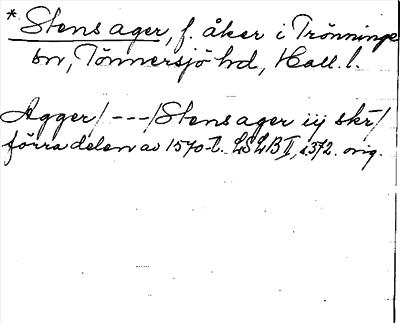 * Stens ager, f. åker i Trönninge
bn, Tönnersjö hd, Hall. l.
Agger/---/Stens ager iij skr/
förra delen av 1570-t. LSLB II, s 372. orig.